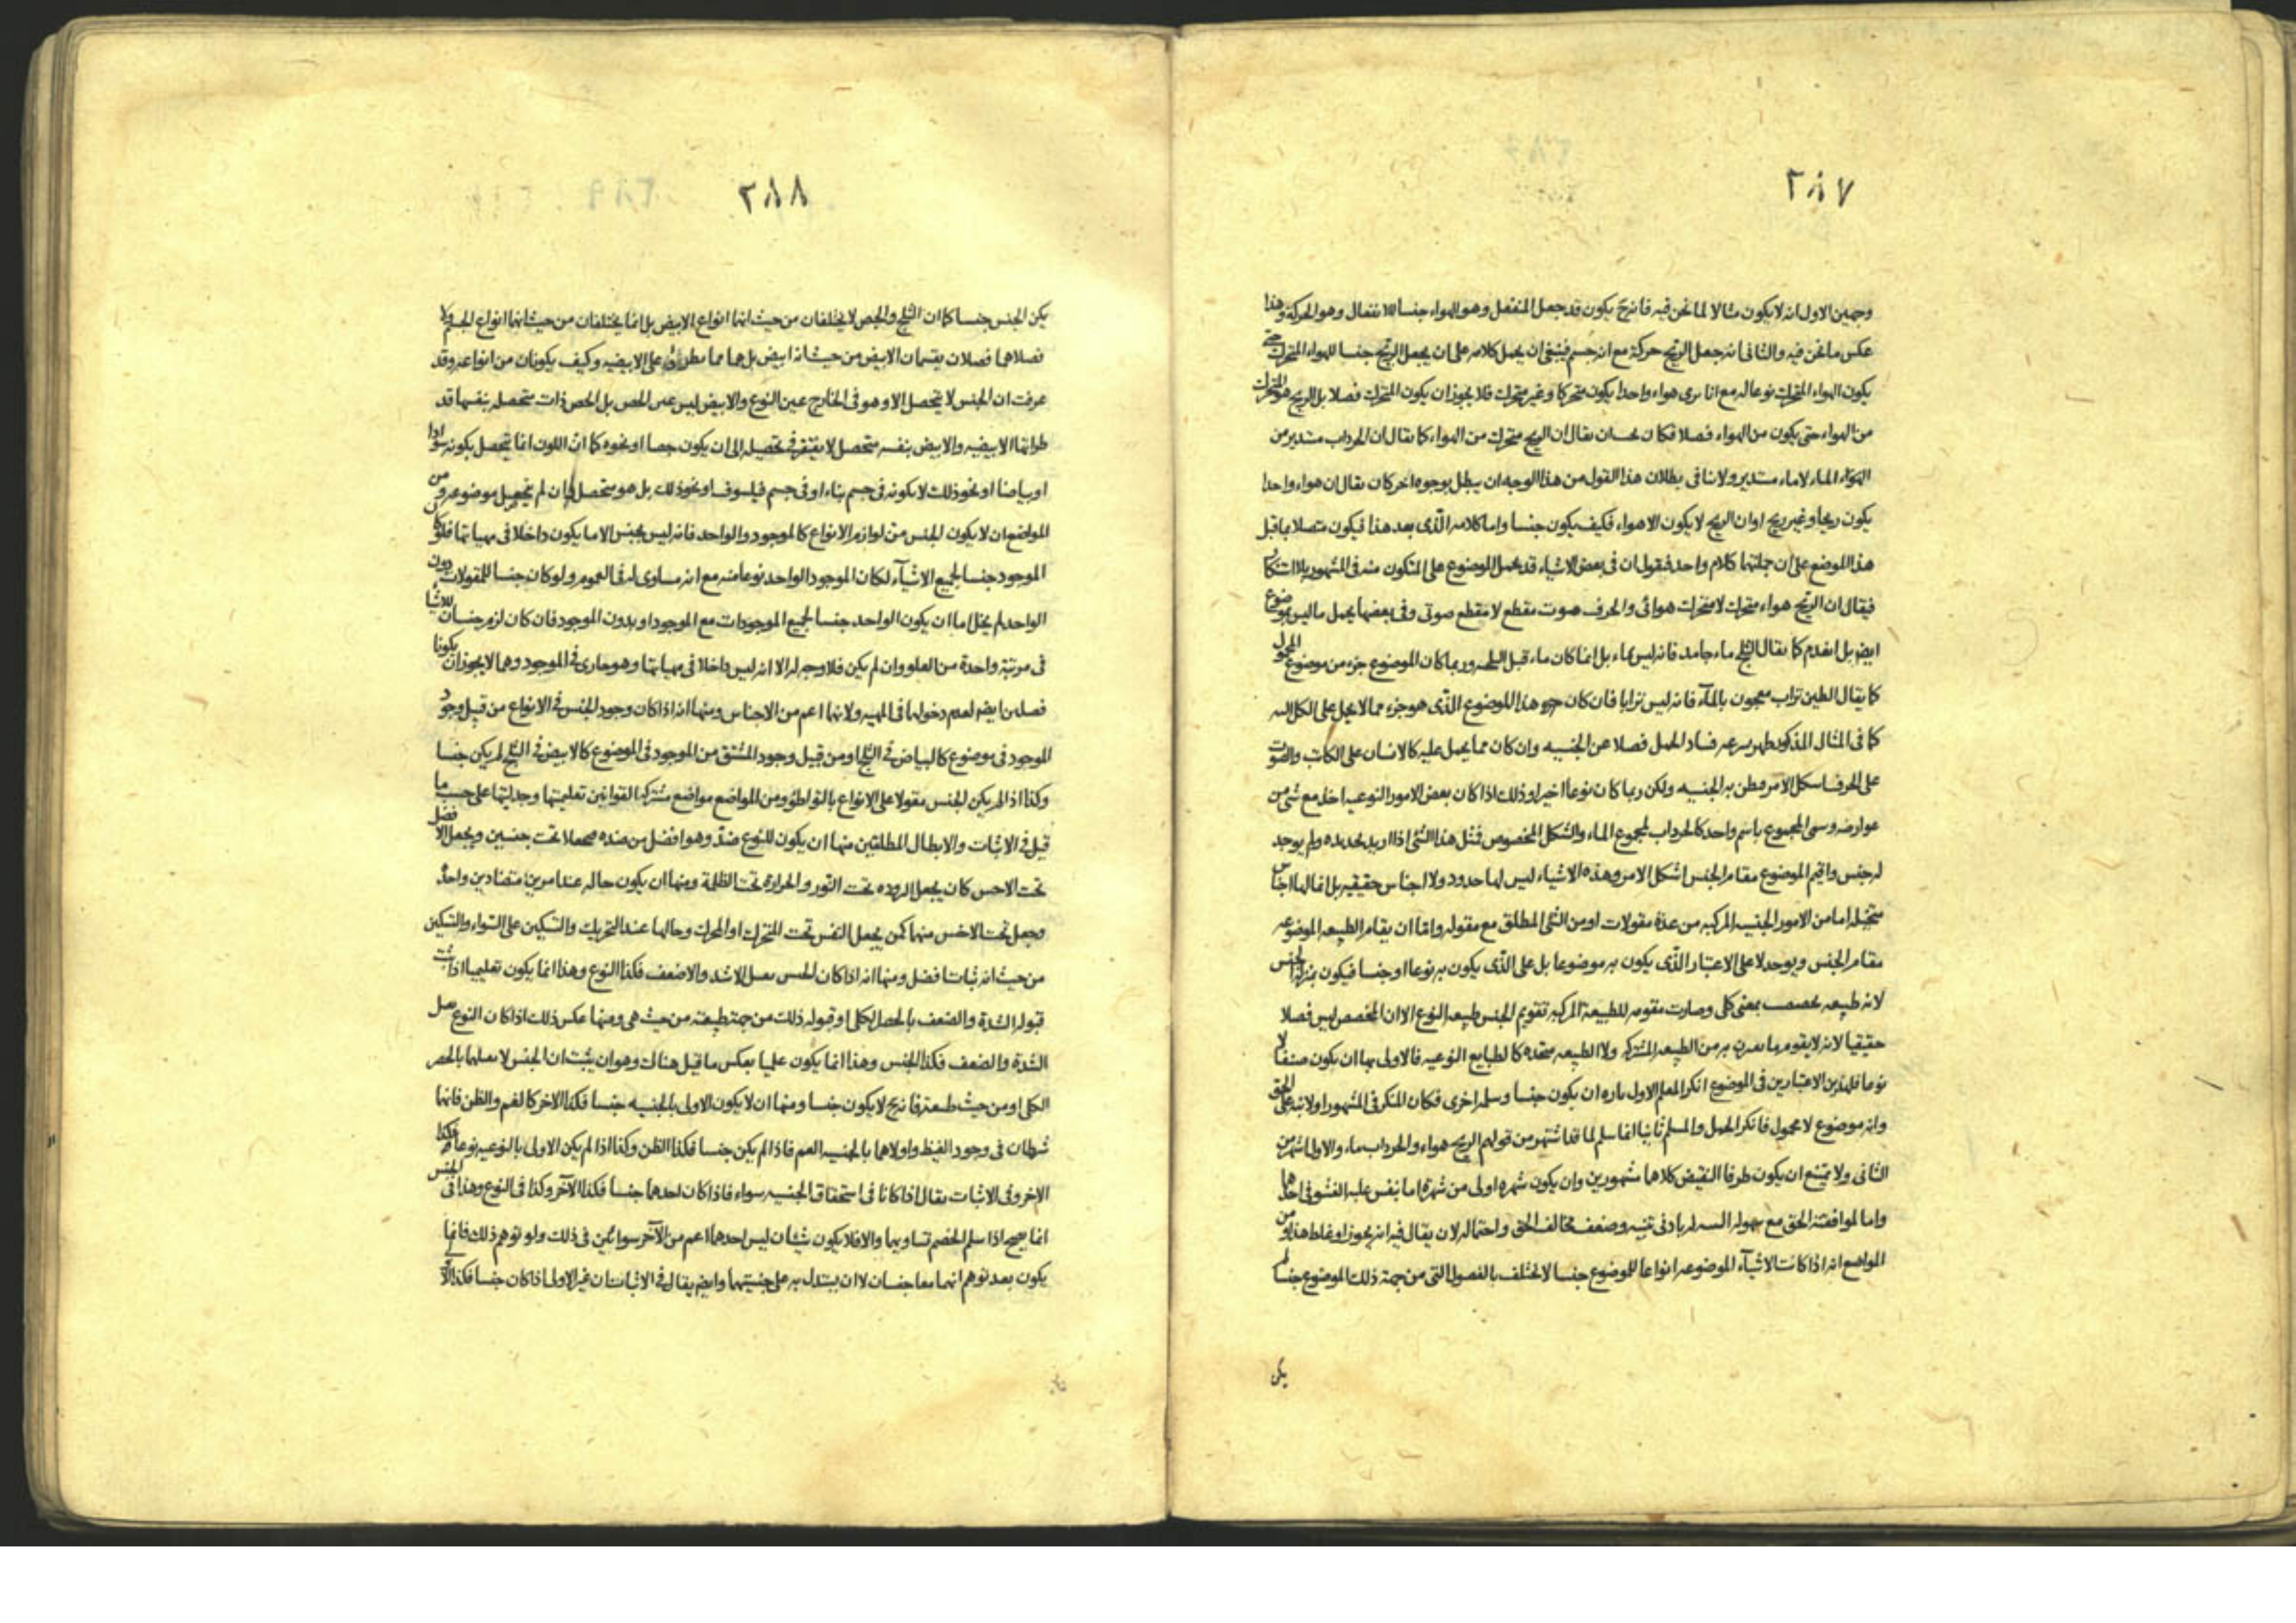 ٢٨٧
وجهين الاول انه لا يكون مثالا لما نحن فيه فانه ح يكون قد جعل المنفعل وهو الهواء جنسا للانفعال وهو الحركة وهذا
عكس ما نحن فيه والثانى انه جعل الريح حركة مع انه جسم فينبغى ان يحمل كلامه على ان يجعل الريح جنسا للهواء المتحرك حتى
يكون الهواء المتحرك نوعا له مع انا نرى هواء واحدا يكون متحركا وغير متحرك فلا يجوز ان يكون المتحرك فصلا بل الريح هو المتحرك
من الهواء حتى يكون من الهواء فصلا فكان يقال ان الريح متحرك من الهواء كما يقال ان الجرداب مستدير من
الماء لا ماء مستدير ولانا فى بطلان هذا القول من هذا الوجه ان يبطل بوجوه اخر كان يقال ان هواء واحدا
يكون ريحا وغير ريح اوان الريح لا يكون الا هواء فكيف يكون جنسا واما كلامه الذى بعد هذا فيكون متصلا بما قبل
هذا الموضع على ان جملتهما كلام واحد فنقول ان فى بعض الاشياء قد يحمل الموضوع على المتكون منه فى المشهور بلا استنكار
فيقال ان الريح هواء متحرك لا متحرك هوائى والحرف صوت مقطع لا مقطع صوتى وفى بعضها يحمل ما ليس بموضوع
ايض بل انعدم كما يقال الثلج ماء جامد فانه ليس بماء بل انما كان ماء قبل وربما كان الموضوع جزء من موضوع المحمول
كما يقال الطين تراب معجون بالماء فانه ليس ترابا فان كان هذا الموضوع الذى هو جزء مما لا يحمل على الكل
كما فى المثال المذكور ظهر سرعة فساد الحمل فضلا عن الجنسيه وان كان مما يحمل عليه كالانسان على الكاتب والصوت
على الحرف اشكل الامر وظن به الجنسيه ولكن ربما كان نوعا اخيرا وذلك اذا كان بعض الامور النوعيه اخذ مع شئ من
عوارضه وسمى المجموع باسم واحد كالجرداب لمجموع الماء والشكل المخصوص فمثل هذا الشئ اذا اريد تحديده ولم يوجد
له جنس واقيم الموضوع مقام الجنس اشكل الامر وهذه الاشياء ليس لها حدود ولا اجناس حقيقيه بل انما لها اجناس
متخيله اما من الامور الجنسيه المركبه من عدة مقولات او من الشئ المطلق مع مقوله واما ان يقام الطبيعه الموضوعه
مقام الجنس ويوجد لا على الاعتبار الذى يكون به موضوعا بل على الذى يكون به نوعا او جنسا فيكون بمنزلة الجنس
لانه طبيعه تخصصت بمعنى كلى وصارت مقومه للطبيعة المركبه تقويم الجنس طبيعه النوع الا ان المخصص ليس فصلا
حقيقيا لانه لا يقوم ما يقرن به من الطبيعه المشتركه ولا الطبيعه متحده كالطبايع النوعيه فالاولى بها ان يكون صنفا لا
نوعا فلهذين الاعتبارين فى الموضوع انكر المعلم الاول تاره ان يكون جنسا وسلمه اخرى فكان المنكر فى المشهور اولا تنبه على الحق
وانه موضوع لا محمول فانكر الحمل والمسلم ثانيا انما سلم لما قد اشتهر من قولهم الريح هواء والجرداب ماء والاول اشهر من
الثانى ولا يمتنع ان يكون طرفا النقيض كلاهما مشهورين وان يكون شهره اولى من شهره اما بنفس غلبه الفشو فى احدهما
واما لموافقة الحق مع سهولة التنبه له بادنى تنبيه وضعف مخالف الحق واحتماله لان يقال فيه انه تجوز او غلط هذا ومن
المواضع انه اذا كانت الاشياء الموضوعه انواعا للموضوع جنسا لا تختلف بالفصول التى من جهة ذلك الموضوع جنسا لم
يكن
٢٨٨
يكن الجنس جنسا كما ان الثلج والجص لا يختلفان من حيث انهما انواع الابيض بل انما يختلفان من حيث انهما انواع الجسم ولا
فصلاهما فصلان يقسمان الابيض من حيث انه ابيض بل هما مما يطرئ على الابيضيه وكيف يكونان من انواعه وقد
عرفت ان الجنس لا يتحصل الا وهو فى الخارج عين النوع والابيض ليس عين الجص بل الجص ذات متحصله بنفسها قد
طرأتها الابيضيه والابيض بنفسه متحصل لا يفتقر فى تحصيله الى ان يكون جصا او نحوه كما ان اللون انما يتحصل بكونه سوادا
او بياضا او نحو ذلك لا بكونه فى جسم بناء او فى جسم فيلسوف او نحو ذلك بل هو متحصل وان لم يتحصل موضوعه ومن
المواضع ان لا يكون الجنس من لوازم الانواع كالموجود والواحد فانه ليس بجنس الا ما يكون داخلا فى مهياتها فلو كان
الموجود جنسا لجميع الاشياء لكان الموجود الواحد نوعا منه مع انه مساوى له فى العموم ولو كان جنسا للمقولات دون
الواحد لم يخل اما ان يكون الواحد جنسا لجميع الموجودات مع الموجود او بدون الموجود فان كان لزم جنسان للاشياء
فى مرتبة واحدة من العلو وان لم يكن فلا وجه له الا انه ليس داخلا فى مهياتها وهو جارى فى الموجود وهما لا يجوز ان يكونا
فصلين ايضه لعدم دخولهما فى المهيه ولانهما اعم من الاجناس ومنها انه اذا كان وجود الجنس فى الانواع من قبيل وجود
الموجود فى موضوع كالبياض فى الثلج او من قبيل وجود المشتق من الموجود فى الموضوع كالابيض فى الثلج لم يكن جنسا
وكذا اذا لم يكن الجنس مقولا على الانواع بالتواطؤ ومن المواضع مواضع مشتركه القوانين تعليميتها وجدليتها على حسب ما
قيل فى الاثبات والابطال المطلقين منها ان يكون للنوع ضد وهو افضل من ضده تحت جنسين ويجعل الافضل
تحت الاخس كان يجعل البروده تحت النور والحرارة تحت الظلمة ومنها ان يكون حاله عند امرين متضادين واحدة
وجعل تحت الاخس منهما كمن يجعل النفس تحت المتحرك او المحرك وحالها عند التحريك والتسكين على السواء والتسكين
من حيث انه ثبات افضل ومنها انه اذا كان الجنس يقبل الاشد والاضعف فكذا النوع وهذا انما يكون تعليميا اذا ثبت
قبوله الشدة والضعف بالحصر الكلى او قبوله ذلك من جهة طبيعته من حيث هى ومنها عكس ذلك اذا كان النوع يقبل
الشدة والضعف فكذا الجنس وهذا انما يكون علميا بعكس ما قيل هناك وهو ان يثبت ان الجنس لا يقبلهما بالحصر
الكلى او من حيث طبيعته فانه ح لا يكون جنسا ومنها ان لا يكون الاولى بالجنسيه جنسا فكذا الاخر كالغم والظن فانهما
شرطان فى وجود الغيظ واولاهما بالجنسيه الغم فاذا لم يكن جنسا فكذا الظن وكذا اذا لم يكن الاولى بالنوعيه نوعا فكذا
الاخر وفى الاثبات يقال اذا كانا فى استحقاق الجنسيه سواء فاذا كان احدهما جنسا فكذا الآخر وكذا فى النوع وهذا فى الجنس
انما يصح اذا سلم الخصم تساويهما والا فلا يكون شيئان ليس احدهما اعم من الآخر سوائين فى ذلك ولو توهم ذلك فانما
يكون بعد توهم انهما معا جنسان لا ان يستدل به على جنسيتهما وايضه يقال فى الاثبات ان غير الاولى اذا كان جنسا فكذا الاولى